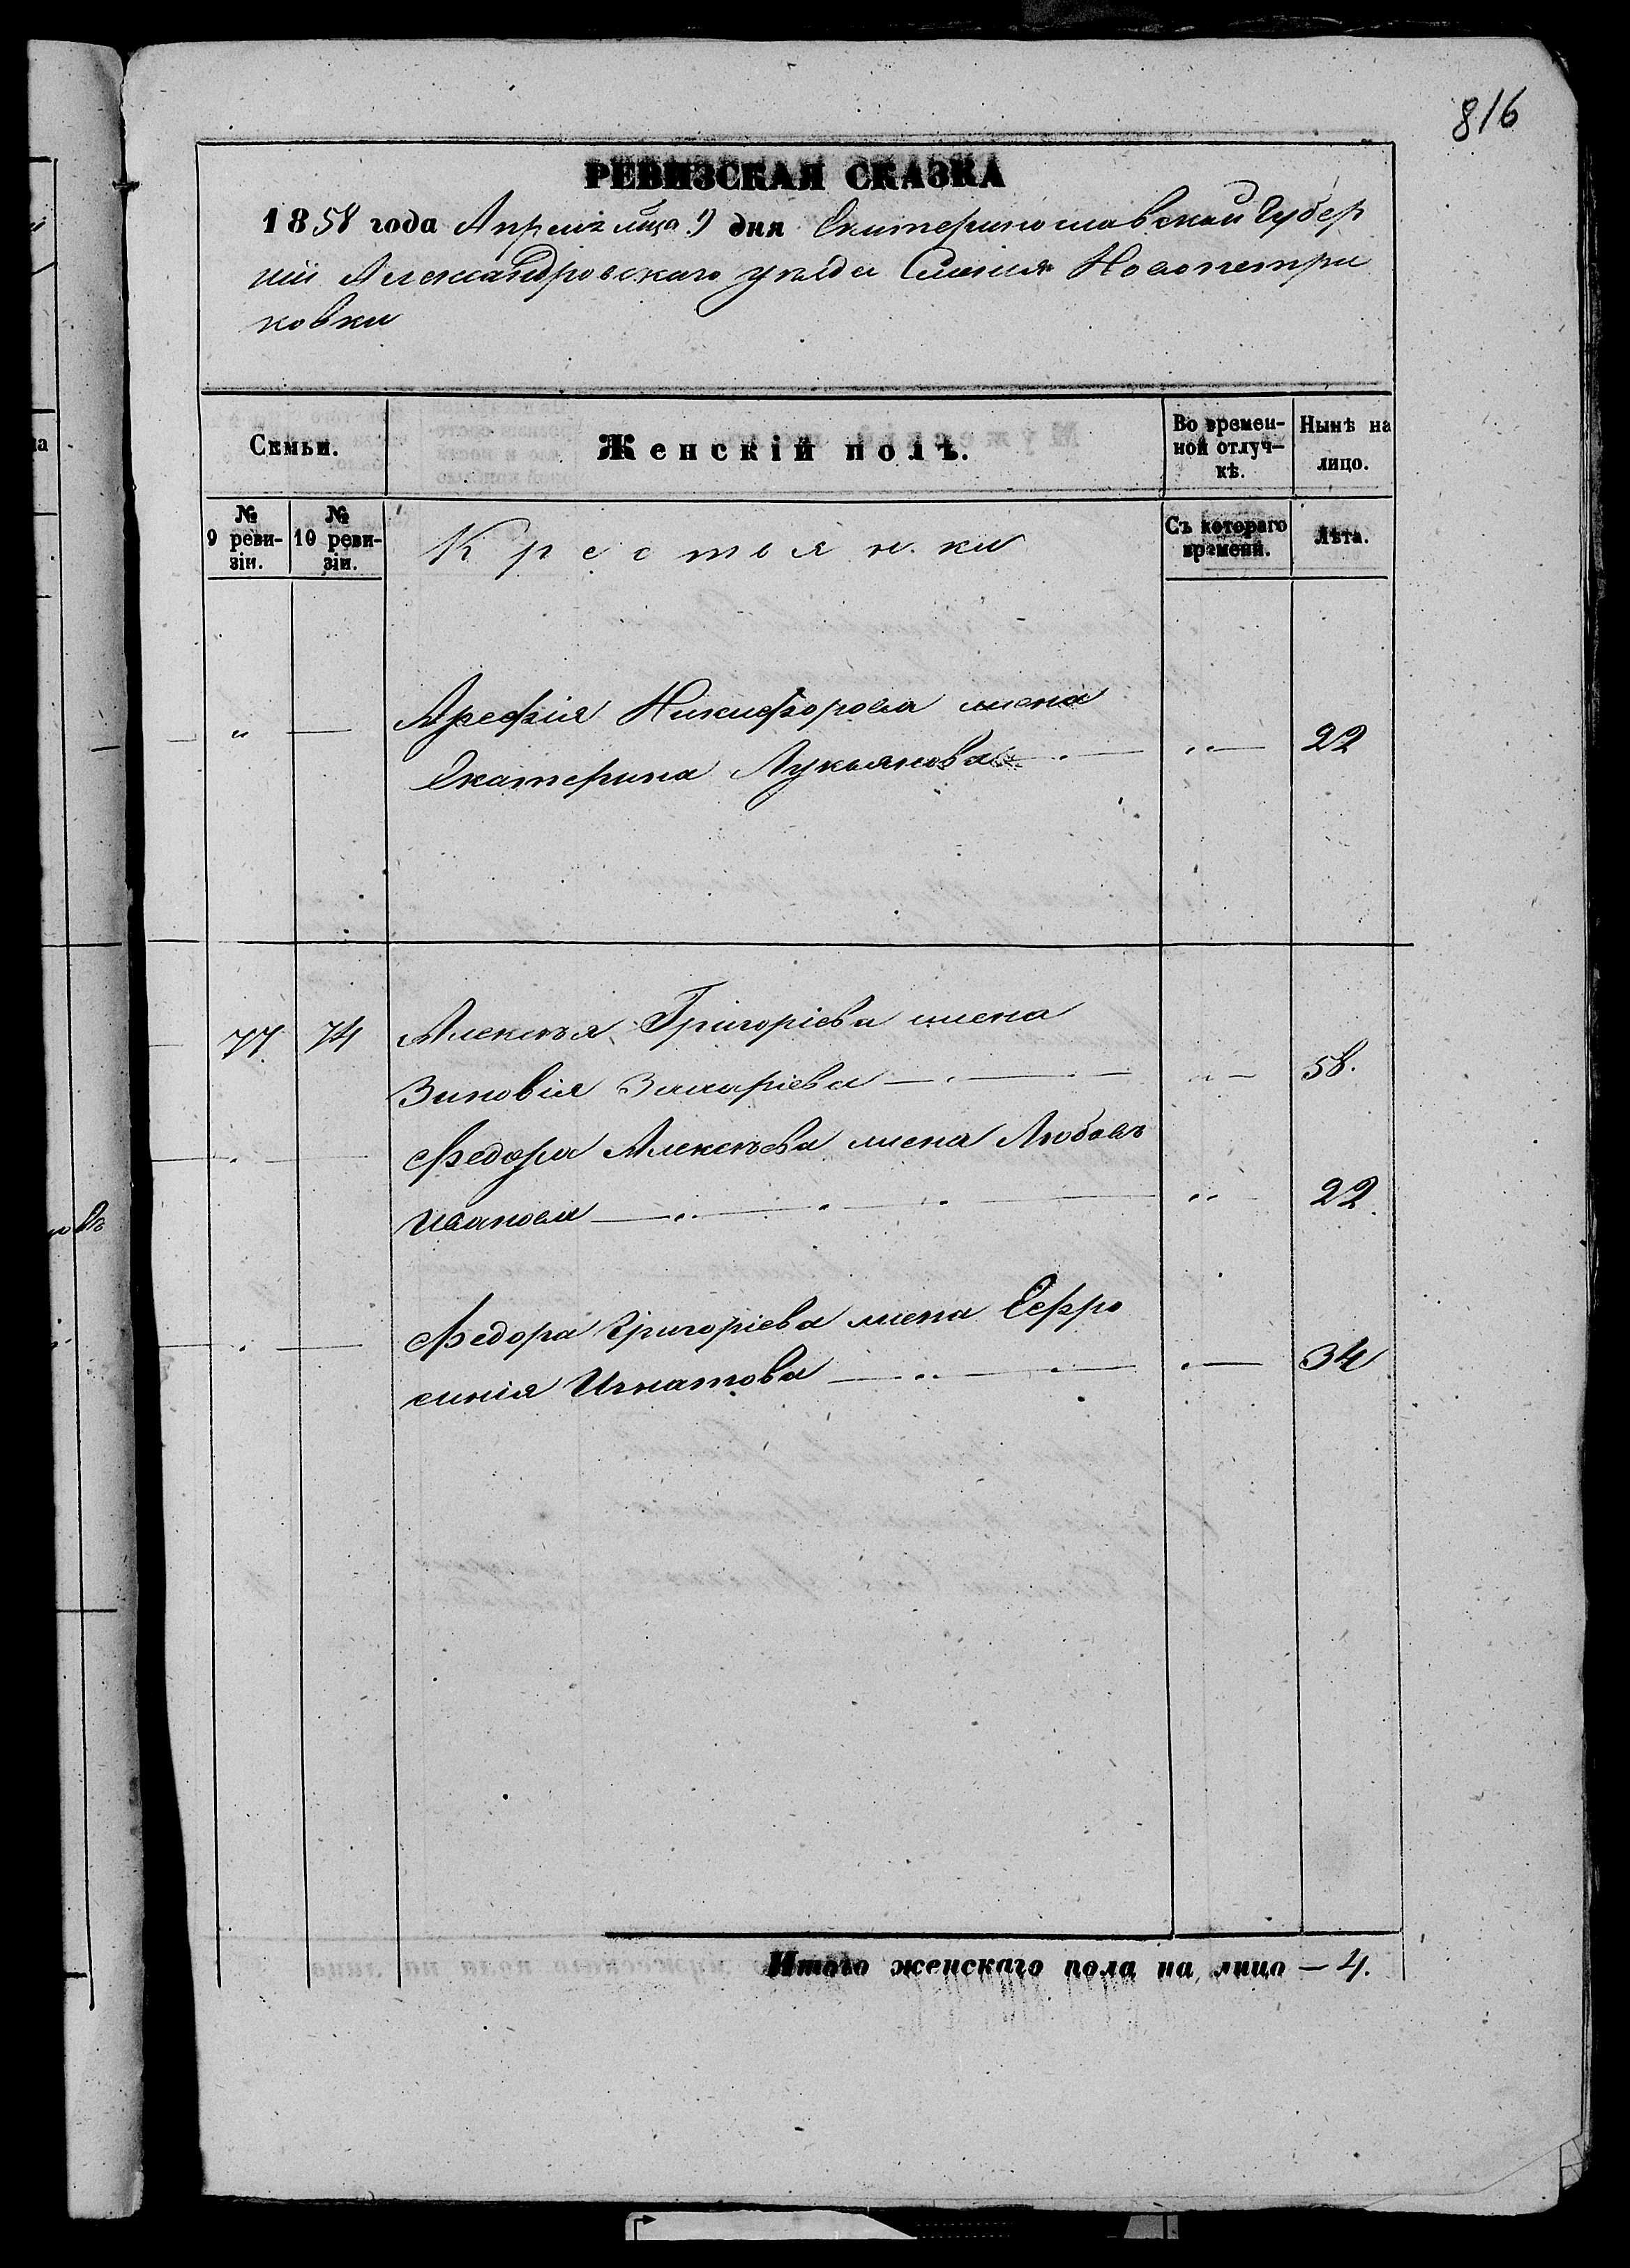 816
РЕВИЗСКАЯ СКАЗКА
1858 года Апреля мѣца 9 дня Екатеринославской Губер
ніи Александровскаго уѣзда Селенія Новопетри
ковки
Семьи.
Женскій полъ.
Во времен-
ной отлуч-
кѣ.
Нынѣ на
лицо.
№
9 реви-
зіи.
№
10 реви-
зіи.
Крестьянки
Съ котораго
времени.
Лѣта.
Арефія Никифорова жена
„ — Екатерина Лукьянова — „ — 22
77. 74 Алексѣя Григоріева жена
Зиновія Захаріева — „ — 58.
Федора Алексѣева жена Любовь
Иванова — „ — 22.
Федора Григоріева жена Ефро
синія Игнатова — „ — 34
Итого женскаго пола на лицо — 4.